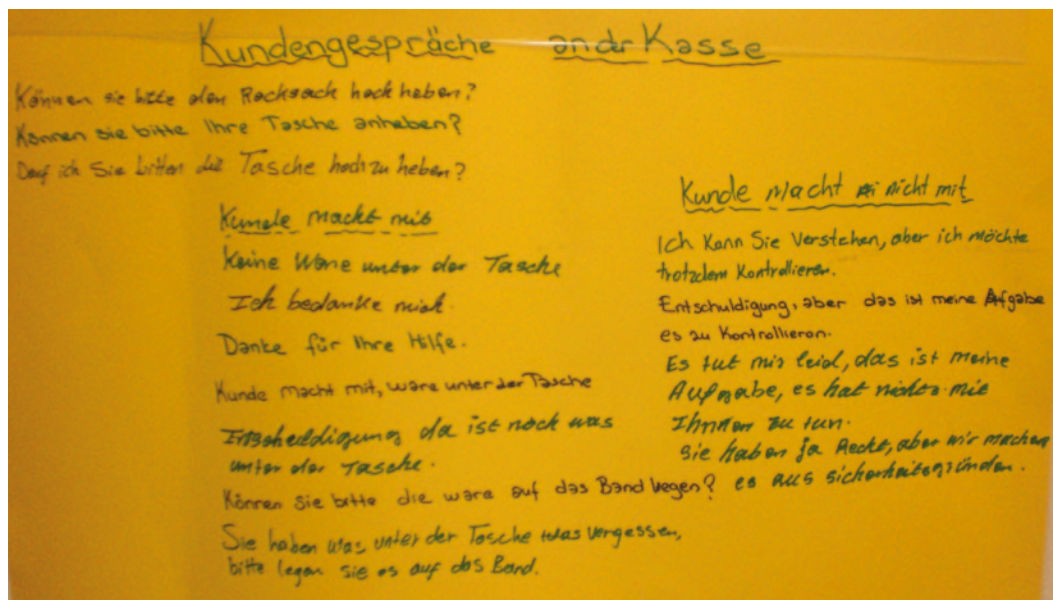 Kundengespräche an der Kasse
Können sie bitte den Rucksack hoch heben?
Können sie bitte Ihre Tasche anheben?
Darf ich Sie bitten die Tasche hoch zu heben?
Kunde macht mit
Keine Ware unter der Tasche
Ich bedanke mich.
Danke für Ihre Hilfe.
Kunde macht mit, ware unter der Tasche
Entschuldigung da ist noch was
unter der Tasche.
Können Sie bitte die ware auf das Band legen?
Sie haben was unter der Tasche was vergessen,
bitte legen sie es auf das Band.
Kunde Macht nicht mit
Ich Kann Sie Verstehen, aber ich möchte
trotzdem Kontrollieren.
Entschuldigung, aber das ist meine Afgabe
es zu Kontrollieren.
Es tut mir leid, das ist meine
Aufgabe, es hat nichts mit
Ihnnen zu tun.
Sie haben ja Recht, aber wir machen
es aus sicherheitsgründen.